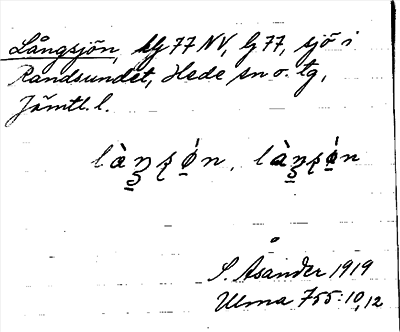 Långsjön, bl 77 NV, G 77, sjö i
Randsundet, Hede sn o. tg,
Jämtl. l.
S. Åsander 1919
Ulma 755:10,12